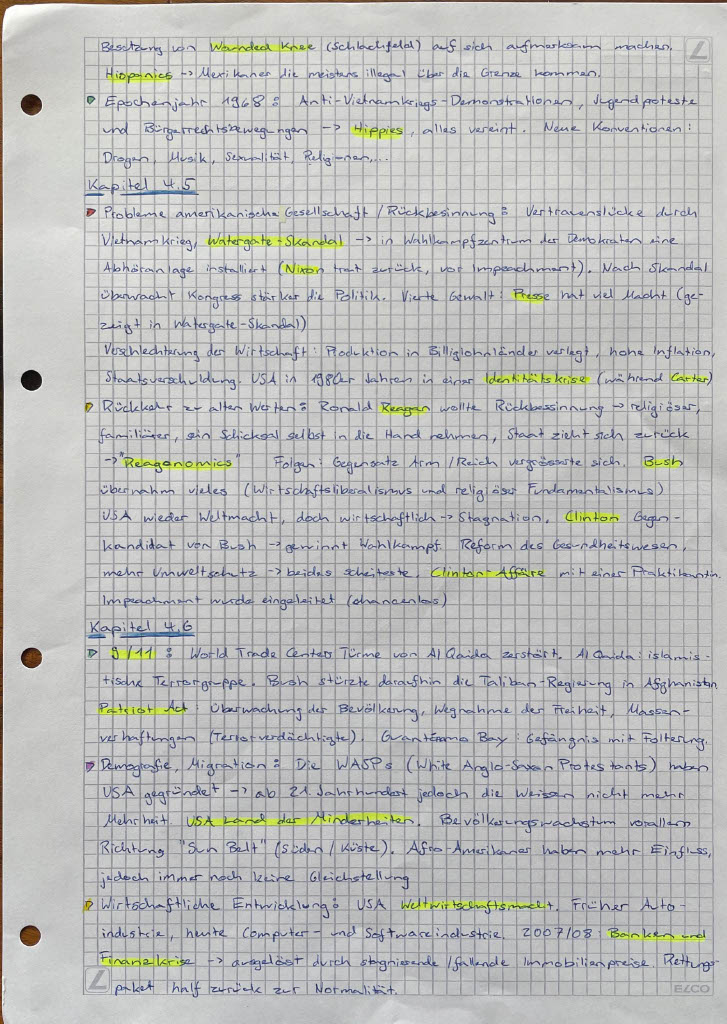 Besetzung von Wounded Knee (Schlachfeld) auf sich aufmerksam machen.
Hispanics -> Mexikaner die meistens illegal über die Grenze kommen.
Epochenjahr 1968: Anti-Vietnamkriegs-Demonstrationen, Jugendproteste
und Bürgerrechtsbewegungen -> Hippies, alles vereint. Neue Konventionen:
Drogen, Musik, Sexualität, Religionen,...
Kapitel 4.5
Probleme amerikanische Gesellschaft / Rückbesinnung: Vertrauenslücke durch
Vietnamkrieg, Watergate-Skandal -> in Wahlkampfzentrum der Demokraten eine
Abhöranlage installiert (Nixon trat zurück, vor Impeachment). Nach Skandal
überwacht Kongress stärker die Politik. Vierte Gewalt: Presse hat viel Macht (ge-
zeigt in Watergate-Skandal)
Verschlechterung der Wirtschaft: Produktion in Billiglohnländer verlegt, hohe Inflation,
Staatsverschuldung. USA in 1980er Jahren in einer Identitätskrise (während Carter)
Rückkehr zu alten Werten: Ronald Reagan wollte Rückbesinnung -> religiöser,
familiärer, sein Schicksal selbst in die Hand nehmen, Staat zieht sich zurück
-> "Reagonomics" Folgen: Gegensatz Arm / Reich vergrösserte sich. Bush
übernahm vieles (Wirtschaftsliberalismus und religiöser Fundamentalismus)
USA wieder Weltmacht, doch wirtschaftlich -> Stagnation. Clinton Gegen-
kandidat von Bush -> gewinnt Wahlkampf. Reform des Gesundheitswesen,
mehr Umweltschutz -> beides scheiterte. Clinton-Affäre mit einer Praktikantin.
Impeachment wurde eingeleitet (chancenlos)
Kapitel 4.6
9/11: World Trade Centers Türme von Al Qaida zerstört. Al Qaida: islamis-
tische Terrorgruppe. Bush stürzte daraufhin die Taliban-Regierung in Afghanistan
Patriot Act: Überwachung der Bevölkerung, Wegnahme der Freiheit, Massen-
verhaftungen (Terrorverdächtigte). Guantánamo Bay: Gefängnis mit Folterung.
Demografie, Migration: Die WASPs (White Anglo-Saxon Protestants) haben
USA gegründet -> ab 21. Jahrhundert jedoch die Weissen nicht mehr
Mehrheit. USA Land der Minderheiten. Bevölkerungswachstum vorallem
Richtung "Sun Belt" (Süden / Küste). Afro-Amerikaner haben mehr Einfluss,
jedoch immer noch keine Gleichstellung
Wirtschaftliche Entwicklung: USA Weltwirtschaftsmacht. Früher Auto-
industrie, heute Computer- und Softwareindustrie. 2007/08: Banken und
Finanzkrise -> ausgelöst durch stagnierende / fallende Immobilienpreise. Rettungs-
paket half zurück zur Normalität.
ELCO